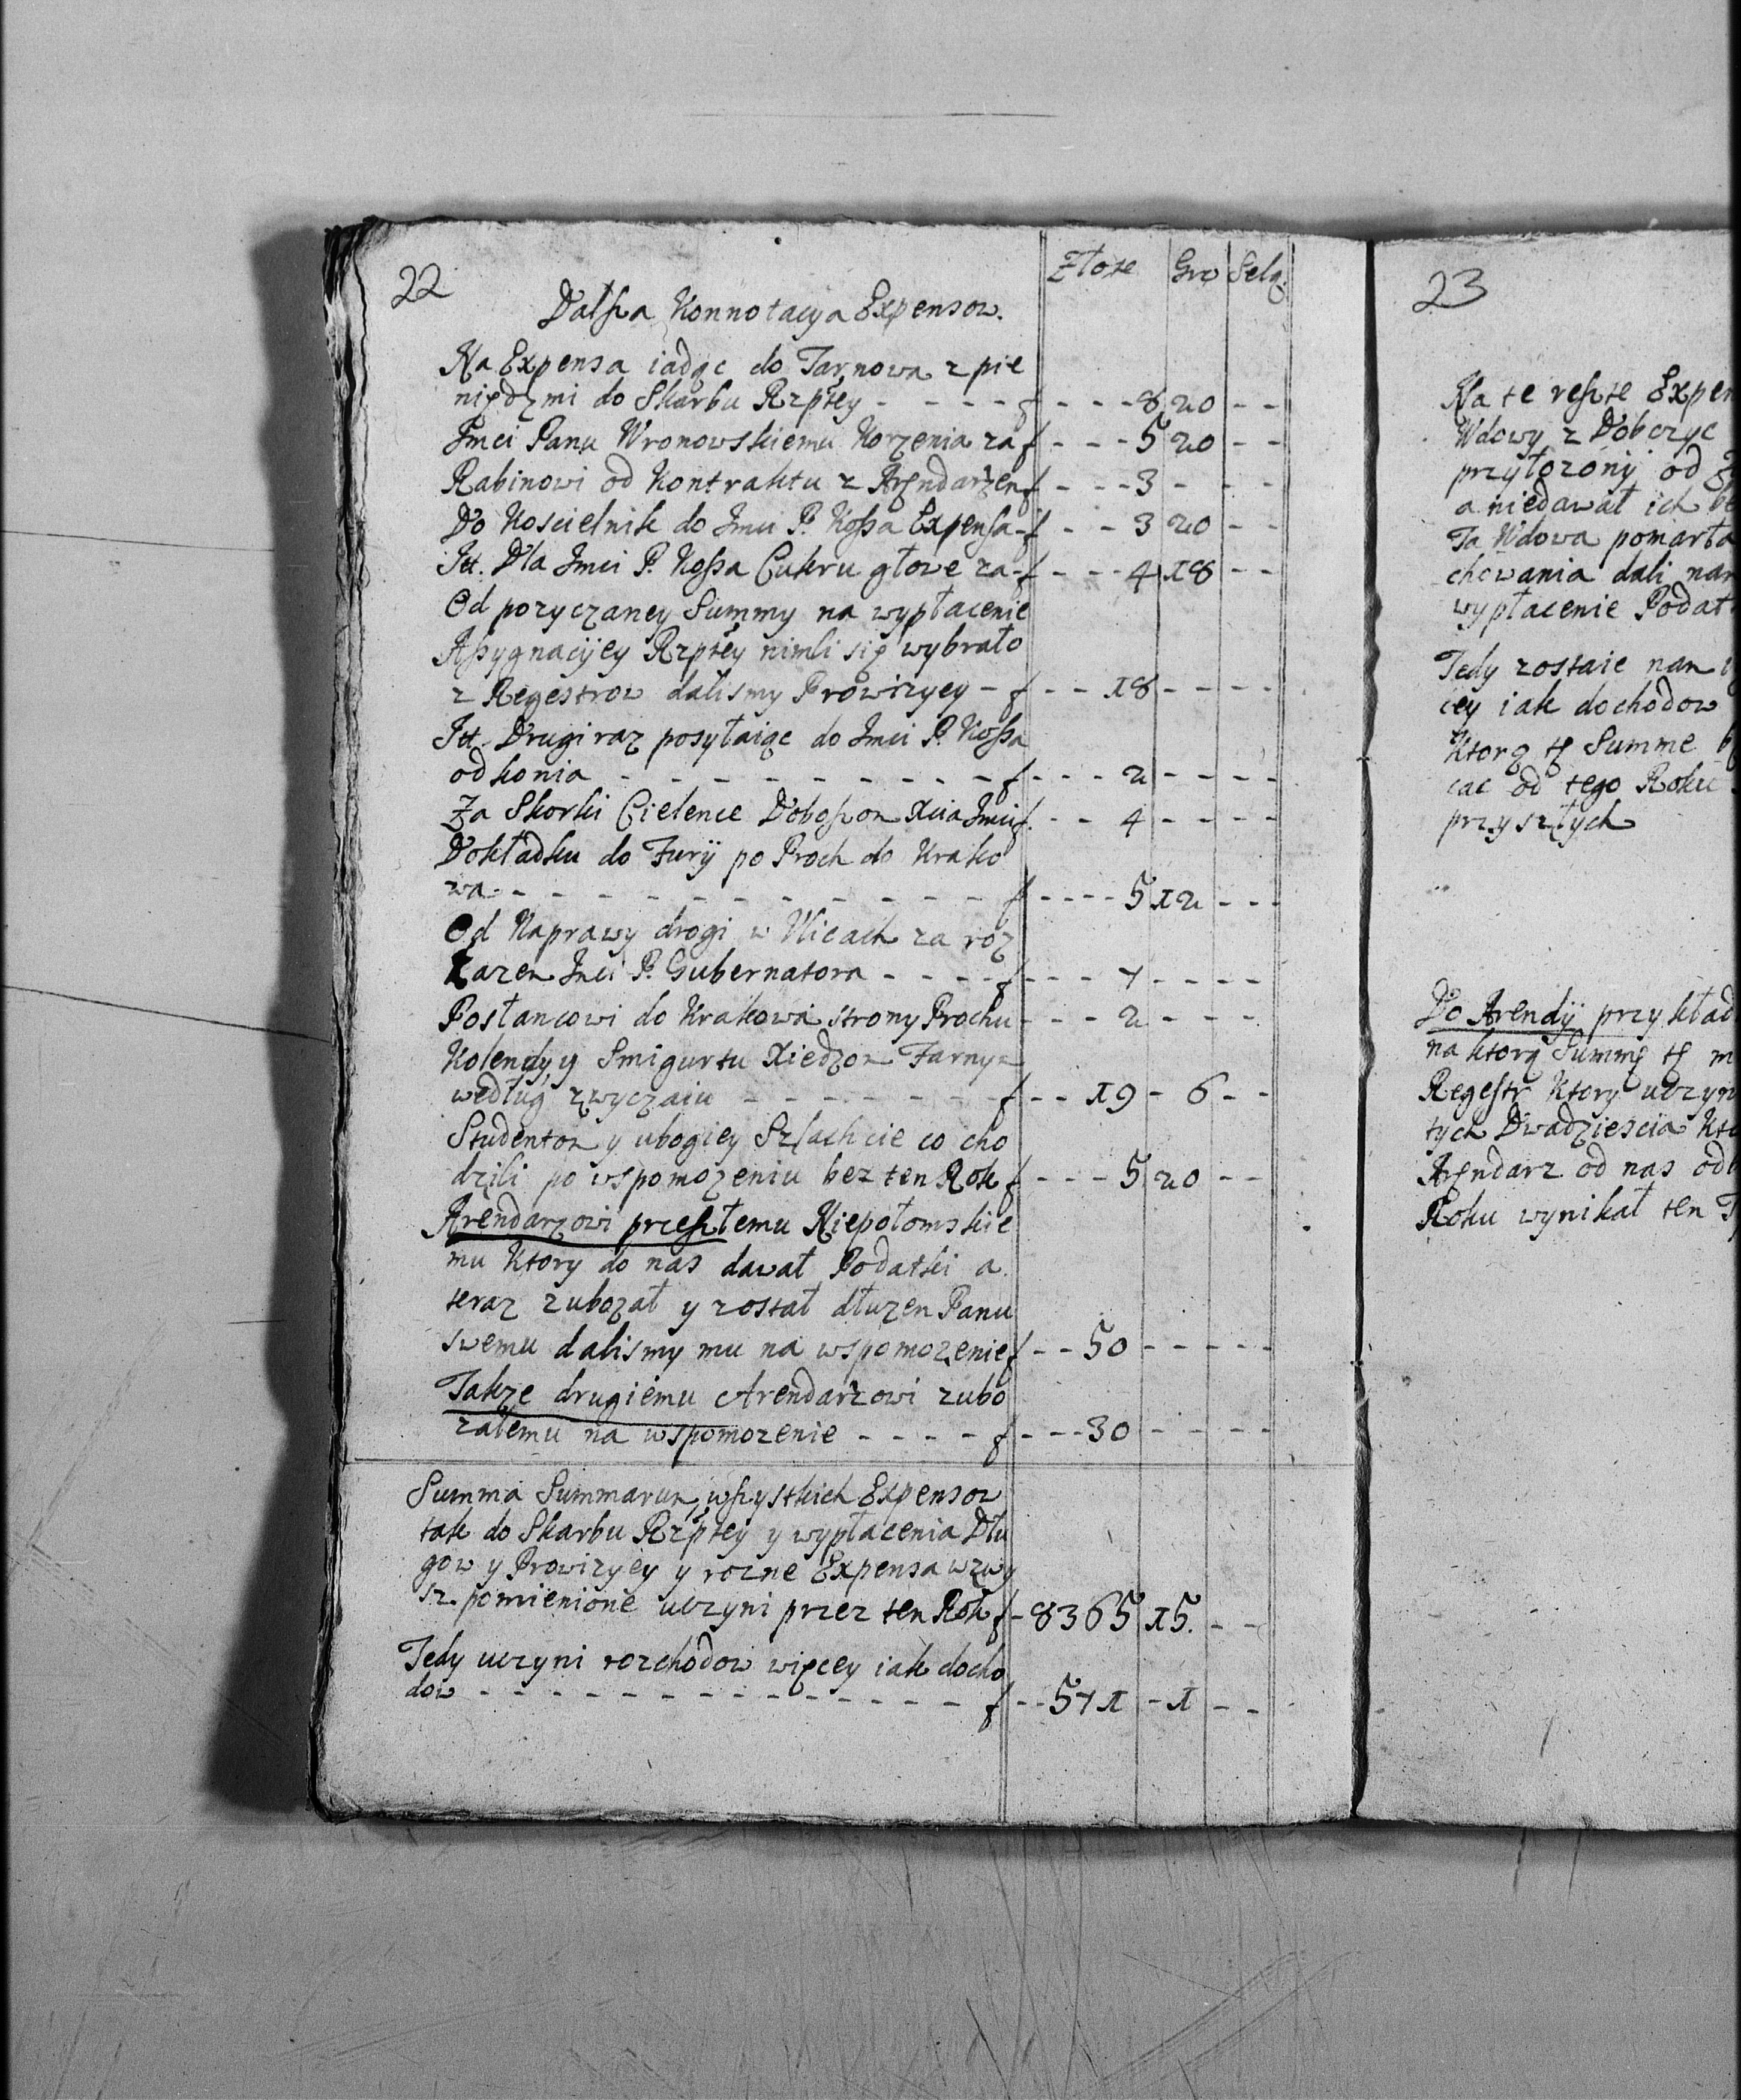 22
Złote Gro Selą:
Dalsza Konnotacya Expensow.
Na Expensa iadąc do Tarnowa z pie
niędzmi do Skarbu Rzptey - - - - f - - - 8 20 - -
Jmci Panu Wronowskiemu Korzenia za f - - - 5 20 - -
Rabinowi od Kontraktu z Aręndarzem f - - - 3 - - -
Do Koscielnik do Jmci P. Kossa Expensa - f - - 3 20 - -
Itt. Dla Jmci P. Kossa Cukru głowe za - f - - - 4 18 - -
Od pozyczaney Summy na wypłacenie
Assygnacyiey Rzptey nimli się wybrało
z Regestrow dalismy Prowizyey - f - - 18 - - - -
Itt. Drugi raz posyłaiąc do Jmci P. Kossa
od konia - - - - - - - - - - f - - - 2 - - - -
Za Skorki Cielence Doboszom Xcia Jmci f. - - 4 - - - -
Dokładku do Furÿ po Proch do Krako
wa - - - - - - - - - - - f - - - - 5 12 - - -
Od Naprawy drogi w Ulicach za roz
kazem Jmci P. Gubernatora - - - - f - - - 7 - - - -
Posłancowi do Krakowa strony Prochu - - - 2 - - - -
Kolendy y Smigurtu Xiedzom Farnym
według zwyczaiu - - - - - - - f - - 19 - 6 - -
Studentom y ubogiey Szlachcie co cho
dzili po wspomozeniu bez ten Rok f - - - 5 20 - -
Arendarzowi przeszłemu Niepołomskie
mu ktory do nas dawał Podatki a
teraz zubozał y został dłuzen Panu
swemu dalismy mu na wspomozenie f - - 50 - - - - -
Takze drugiemu Arendarzowi zubo
załemu na wspomozenie - - - - f - - - 30 - - - -
Summa Summarum wszystkich Expensow
tak do Skarbu Rzptey y wypłacenia Dłu
gow y Prowizyey y rozne Expensa wzwy
sz pomienione uczyni przez ten Rok f - 8365 15. - -
Tedy uczyni rozchodow więcey iak docho
dow - - - - - - - - - - - - - - f - - 571 - 1 - -
23
Na te reszte Expen
Wdowy z Dobczyc
przyłozony od
a niedawał ich
Ta Wdowa pomarła
chowania dali nam
wypłacenie Podat
Tedy zostaie nam
cey iak dochodow
Ktorą tę Summe
cac od tego Roku
przyszłych
Do Arendÿ przykład
na ktorą Summę tę
Regestr Ktory uczyn
tych Dwadziescia
Aręndarz od nas
Roku wynikał ten